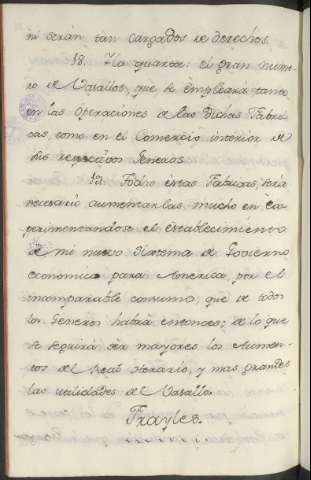 ni serán tan cargados de derechos.
18. La quarta: el gran nume-
ro de Vasallos, que se empleará tanto
en las Operaciones de las dichas Fabri-
cas, como en el Comercio interior de
sus respectivos Generos.
19. Todas estas Fabricas, será
necesario aumentarlas mucho en Es-
perimentandose el establecimiento
de mi nuevo Sistema de Govierno
economico para America, por el
incomparable consumo, que de todos
los Generos habrá entonces; de lo que
se seguirá ser mayores los Aumen-
tos del Real Herario, y mas grandes
las utilidades del Vasallo.
Frayles.